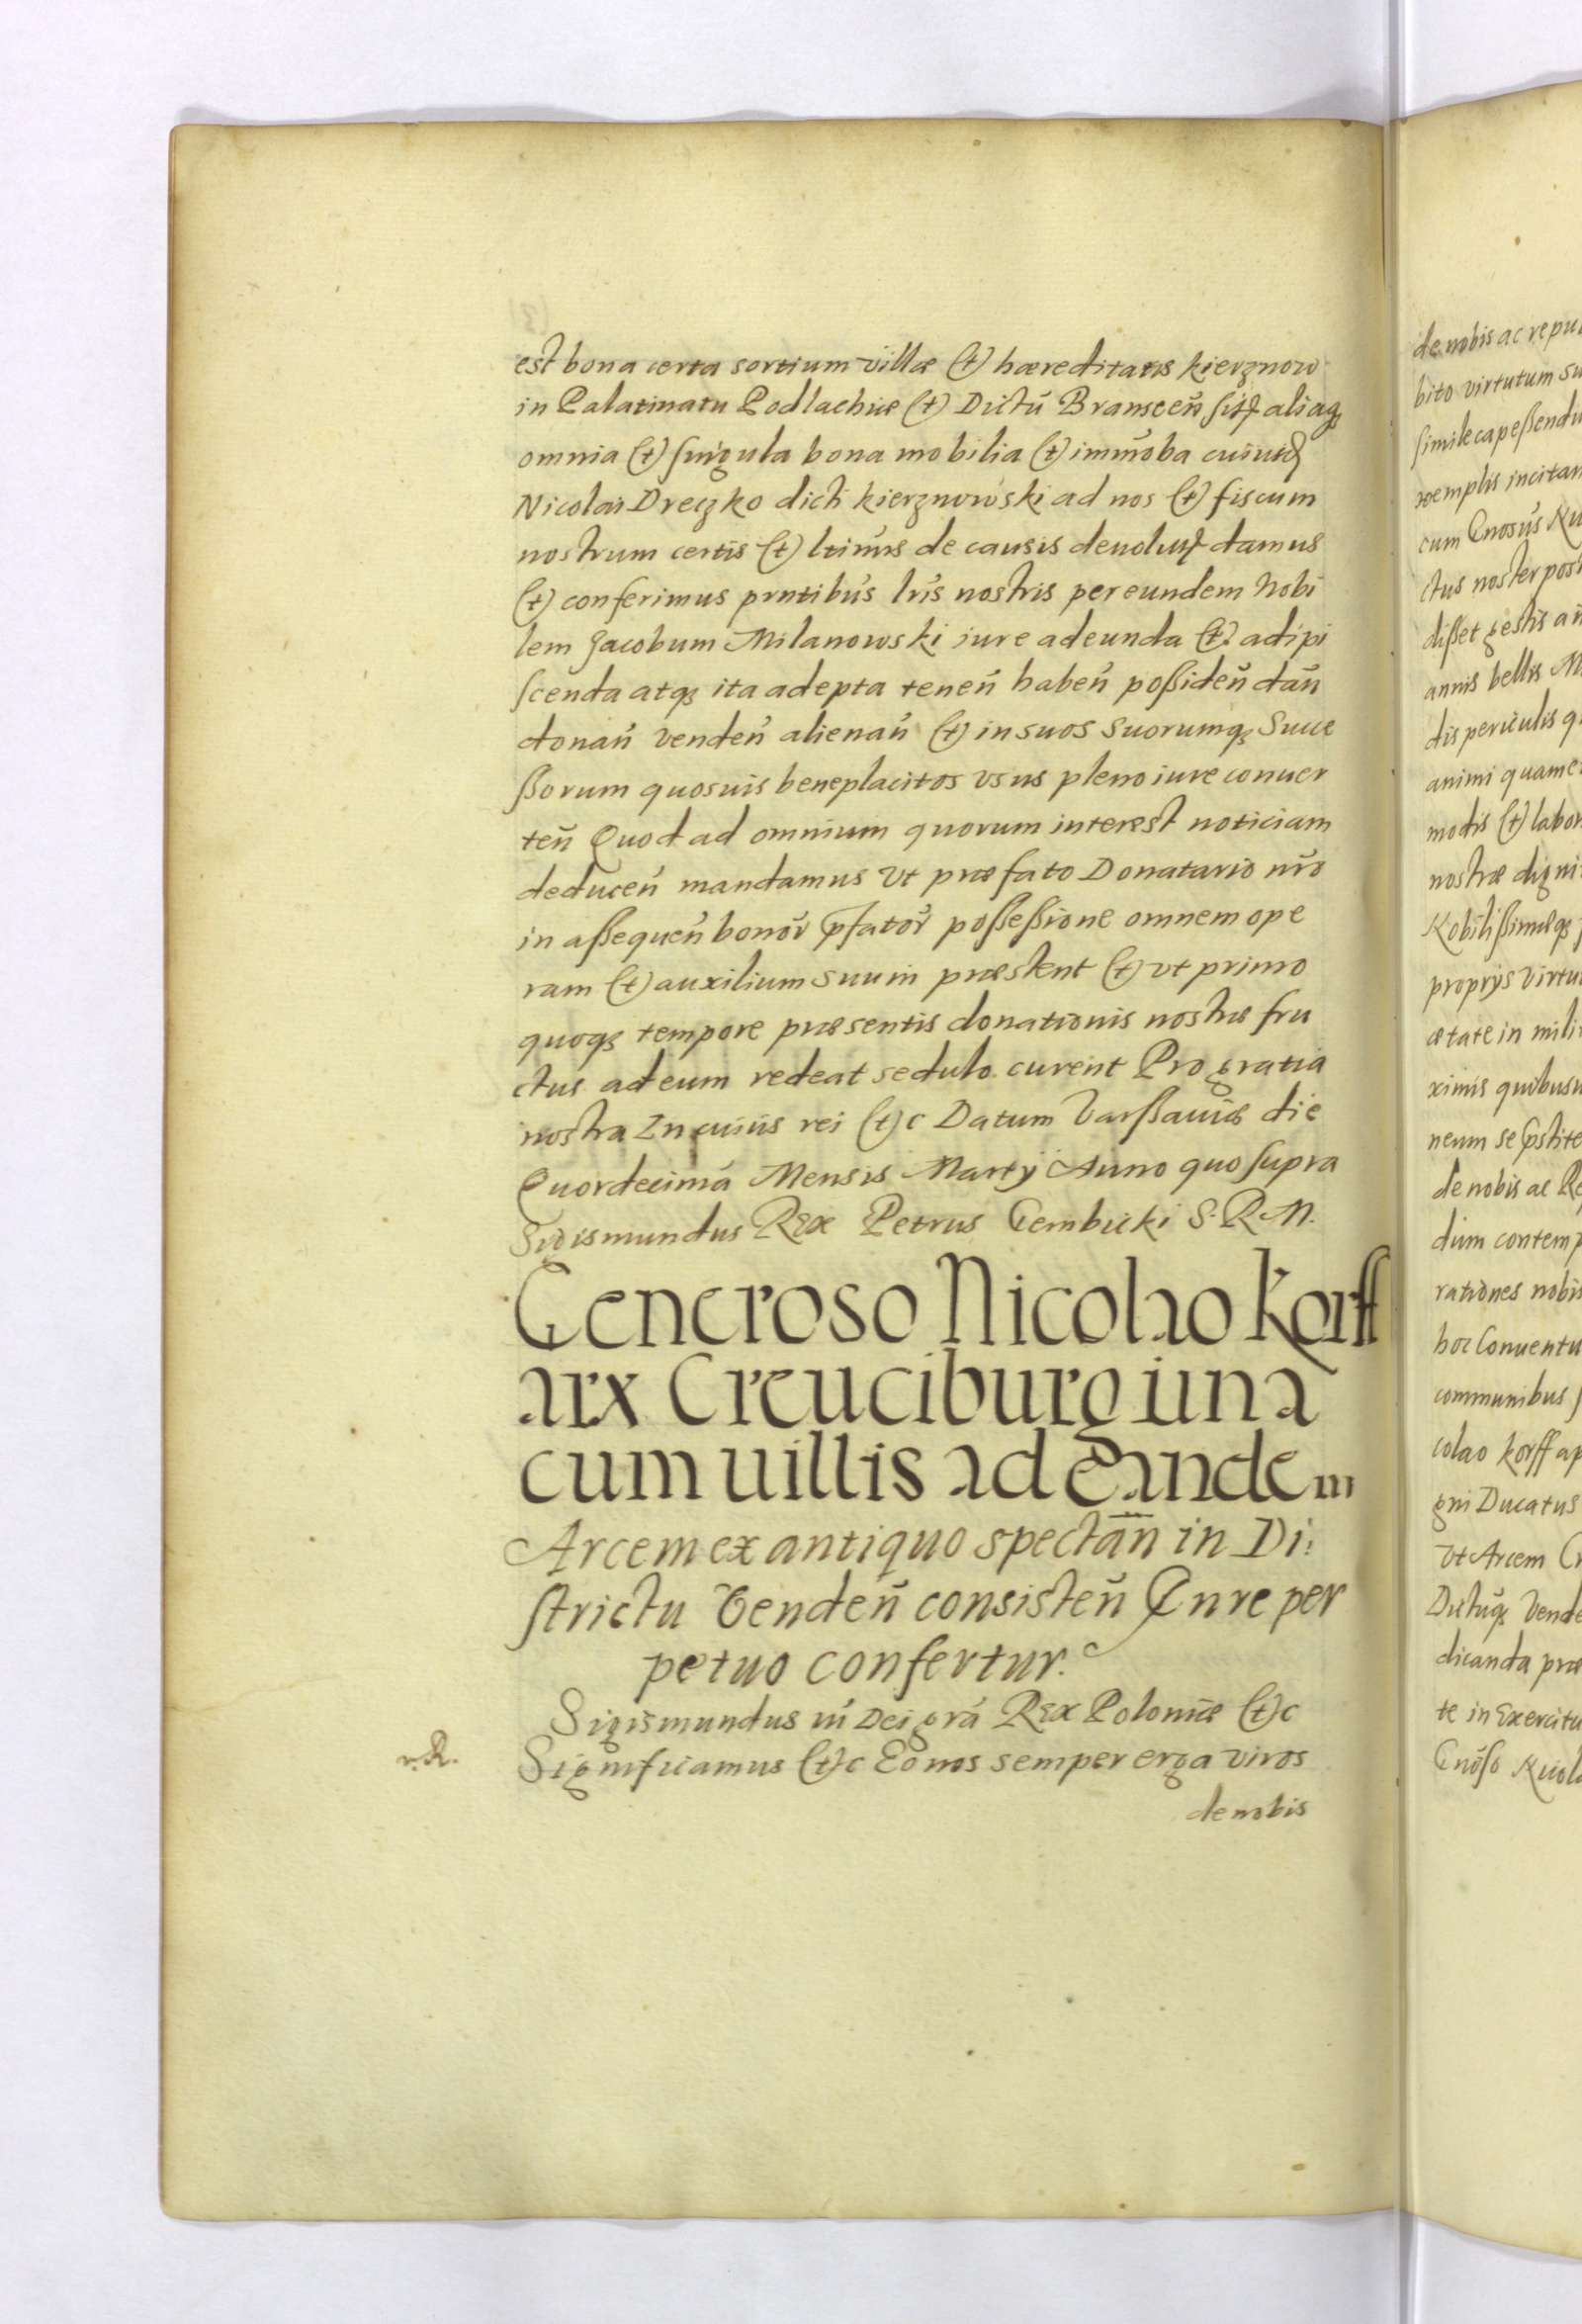 est bona certa sortium villæ (et) hæreditatis kierznow
in Palatinatu Podlachiæ (et) Dictũ Branscen̄ sitą aliaq;
omnia (et) singula bona mobilia (et) imm̄oba cuiusd
Nicolai Dreczko dicti kierznowski ad nos (et) fiscum
nostrum certis (et) ltimis de causis deuoluta damus
(et) conferimus prntibus lris nostris per eundem Nobi
lem Jacobum Milanowski iure adeunda (et) adipi
scenda atq; ita adepta tenen̄ haben̄ poßiden̄ dan̄
donan̄ venden̄ alienan̄ (et) in suos Suorumq; Succe
ßorum quosuis beneplacitos vsus pleno iure conuer
ten̄ Quod ad omnium quorum interest noticiam
deducen̄ mandamus vt præfato Donatario nr̄o
in aßequen̄ bonor̄ p̱fator̄ poßeßione omnem ope
ram (et) auxilium suum præstent (et) vt primo
quoq; tempore præsentis donationis nostræ fru
ctus ad eum redeat sedulo curent Pro gratia
nostra In cuius rei (et)c Datum Varßauiæ die
Quordecima Mensis Martÿ Anno quo supra
Sigismundus Rex Petrus Gembicki S. R. M.
Generoso Nicolao Korff
arx Creuciburg una
cum uillis ad eandem
Arcem ex antiquo spectan̄ in Di:
strictu Venden̄ consisten̄ Iure per
petuo confertur.
Sigismundus iii Dei gr̄a Rex Poloniæ (et)c
r. R.
Significamus (et)c Eo nos semper erga viros
de nobis
de nobis ac repu
bito virtutum su
simile capeßendu
xemplis incitan
cum Gnosus Ni
ctus noster post
dißet gestis an
annis bellis M
dis periculis q
animi quam e
modis (et) labor
nostræ digni
Nobilißimæq;
proprÿs virtu
ætate in mili
ximis quibusu
neum se p̱stite
de nobis ac Re
dum contemp
rationes nobis
hoc Conuentu
communibus
colao Korff ap
gni Ducatus
vt Arcem Cr
Dictuq; Vende
dicanda præ
te in Exercitu
Gnōso Nicola